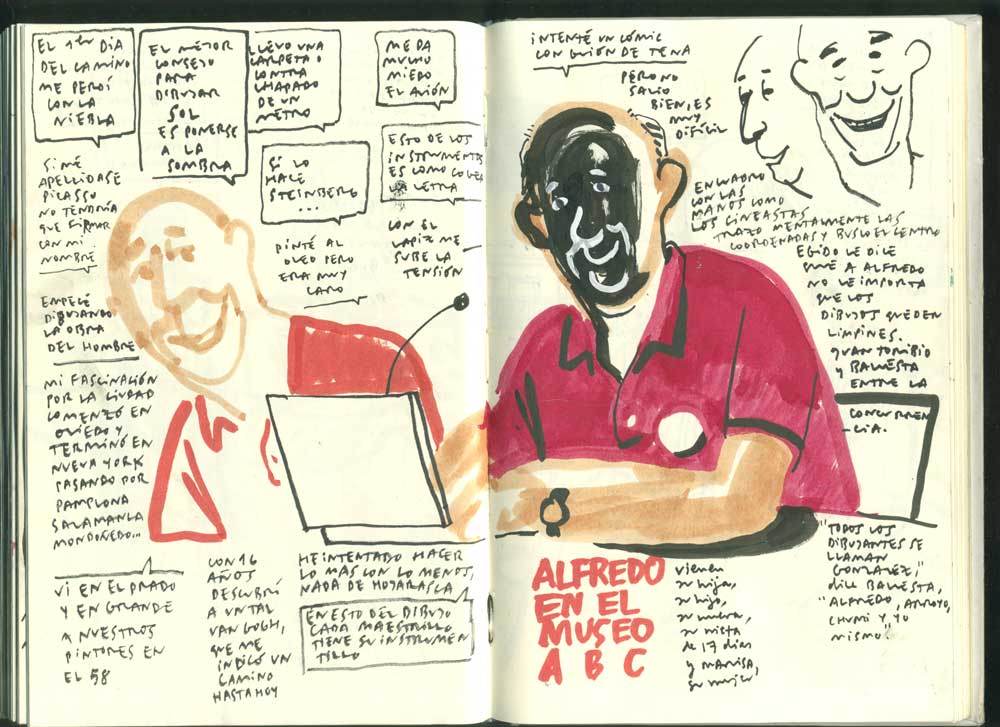 EL 1er DIA
DEL CAMINO
ME PERDÍ
CON LA
NIEBLA
EL MEJOR
CONSEJO
PARA
DIBUJAR
SOL
ES PONERSE
A LA
SOMBRA
LLEVO UNA
CARPETA O
CONTRA
CHAPADO
DE UN
METRO
ME DA
MUCHO
MIEDO
EL AVIÓN
SI ME
APELLIDASE
PICASSO
NO TENDRÍA
QUE FIRMAR
CON MI
NOMBRE
SI LO
HACE
STEINBERG
...
ESTO DE LOS
INSTRUMENTOS
ES COMO
LA LETRA
PINTÉ AL
OLEO PERO
ERA MUY
CARO
CON EL
LAPIZ ME
SUBE LA
TENSIÓN
EMPECÉ
DIBUJANDO
LA OBRA
DEL HOMBRE
MI FASCINACIÓN
POR LA CIUDAD
COMENZÓ EN
OVIEDO Y
TERMINÓ EN
NUEVA YORK
PASANDO POR
PAMPLONA
SALAMANCA
MONDOÑEDO...
VI EN EL PRADO
Y EN GRANDE
A NUESTROS
PINTORES EN
EL 58
CON 16
AÑOS
DESCUBRÍ
A UN TAL
VAN GOGH,
QUE ME
INDICÓ UN
CAMINO
HASTA HOY
HE INTENTADO HACER
LO MAS CON LO MENOS,
NADA DE HOJARASCA
EN ESTO DEL DIBUJO
CADA MAESTRILLO
TIENE SU INSTRUMEN
TILLO
INTENTÉ UN CÓMIC
CON GUIÓN DE TENA
PERO NO
SALIO
BIEN, ES
MUY
DIFÍCIL
ENCUADRO
CON LAS
MANOS COMO
LOS CINEASTAS
TRAZO MENTALMENTE LAS
COORDENADAS Y BUSCO EL CENTRO
EGIDO LE DICE
QUE A ALFREDO
NO LE IMPORTA
QUE LOS
DIBUJOS QUEDEN
LIMPINES.
JUAN TORIBIO
Y BALLESTA
ENTRE LA
CONCURREN
-CIA.
ALFREDO
EN EL
MUSEO
A B C
vienen
su hija,
su hijo,
su nuera,
su nieta
de 17 días
y Marisa,
su mujer
"TODOS LOS
DIBUJANTES SE
LLAMAN
GONZALEZ,"
dice BALLESTA,
"ALFREDO, ARROYO,
CHUMI Y YO
MISMO"